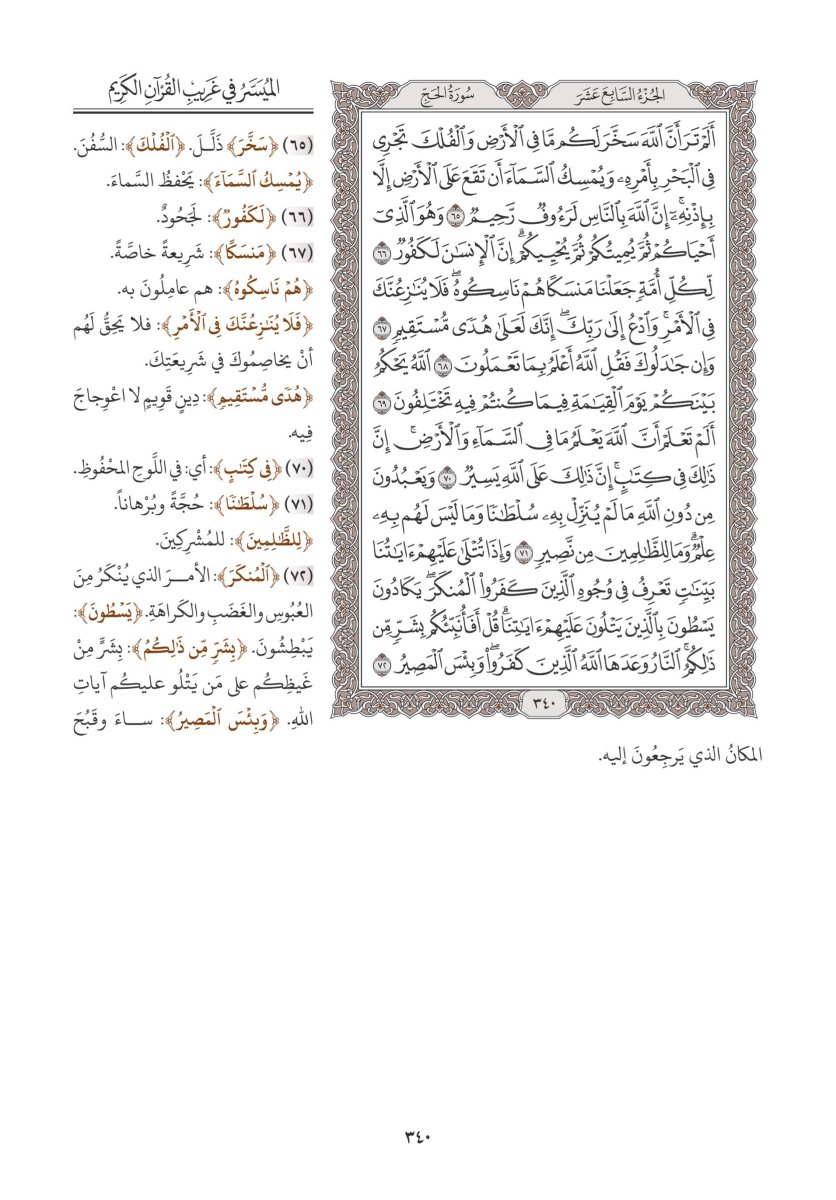 الجُزْءُ السَّابِعَ عَشَرَ
سُورَةُ الحَجِّ
أَلَمْ تَرَ أَنَّ ٱللَّهَ سَخَّرَ لَكُم مَّا فِى ٱلْأَرْضِ وَٱلْفُلْكَ تَجْرِى
فِى ٱلْبَحْرِ بِأَمْرِهِۦ وَيُمْسِكُ ٱلسَّمَآءَ أَن تَقَعَ عَلَى ٱلْأَرْضِ إِلَّا
بِإِذْنِهِۦٓ ۚ إِنَّ ٱللَّهَ بِٱلنَّاسِ لَرَءُوفٌ رَّحِيمٌ ٦٥ وَهُوَ ٱلَّذِىٓ
أَحْيَاكُمْ ثُمَّ يُمِيتُكُمْ ثُمَّ يُحْيِيكُمْ ۗ إِنَّ ٱلْإِنسَٰنَ لَكَفُورٌ ٦٦
لِّكُلِّ أُمَّةٍ جَعَلْنَا مَنسَكًا هُمْ نَاسِكُوهُ ۖ فَلَا يُنَٰزِعُنَّكَ
فِى ٱلْأَمْرِ ۚ وَٱدْعُ إِلَىٰ رَبِّكَ ۖ إِنَّكَ لَعَلَىٰ هُدًى مُّسْتَقِيمٍ ٦٧
وَإِن جَٰدَلُوكَ فَقُلِ ٱللَّهُ أَعْلَمُ بِمَا تَعْمَلُونَ ٦٨ ٱللَّهُ يَحْكُمُ
بَيْنَكُمْ يَوْمَ ٱلْقِيَٰمَةِ فِيمَا كُنتُمْ فِيهِ تَخْتَلِفُونَ ٦٩
أَلَمْ تَعْلَمْ أَنَّ ٱللَّهَ يَعْلَمُ مَا فِى ٱلسَّمَآءِ وَٱلْأَرْضِ ۗ إِنَّ
ذَٰلِكَ فِى كِتَٰبٍ ۚ إِنَّ ذَٰلِكَ عَلَى ٱللَّهِ يَسِيرٌ ٧٠ وَيَعْبُدُونَ
مِن دُونِ ٱللَّهِ مَا لَمْ يُنَزِّلْ بِهِۦ سُلْطَٰنًا وَمَا لَيْسَ لَهُم بِهِۦ
عِلْمٌ ۗ وَمَا لِلظَّٰلِمِينَ مِن نَّصِيرٍ ٧١ وَإِذَا تُتْلَىٰ عَلَيْهِمْ ءَايَٰتُنَا
بَيِّنَٰتٍ تَعْرِفُ فِى وُجُوهِ ٱلَّذِينَ كَفَرُوا۟ ٱلْمُنكَرَ ۖ يَكَادُونَ
يَسْطُونَ بِٱلَّذِينَ يَتْلُونَ عَلَيْهِمْ ءَايَٰتِنَا ۗ قُلْ أَفَأُنَبِّئُكُم بِشَرٍّ مِّن
ذَٰلِكُمُ ۗ ٱلنَّارُ وَعَدَهَا ٱللَّهُ ٱلَّذِينَ كَفَرُوا۟ ۖ وَبِئْسَ ٱلْمَصِيرُ ٧٢
٣٤٠
المُيَسَّرُ في غَرِيبِ القُرْآنِ الكَرِيمِ
(٦٥) ﴿سَخَّرَ﴾ ذَلَّـلَ. ﴿ٱلْفُلْكَ﴾: السُّفُنَ.
﴿يُمْسِكُ ٱلسَّمَآءَ﴾: يَحْفظُ السَّماءَ.
(٦٦) ﴿لَكَفُورٌ﴾: لَجَحُودٌ.
(٦٧) ﴿مَنسَكًا﴾: شَرِيعةً خاصَّةً.
﴿هُمْ نَاسِكُوهُ﴾: هم عامِلُونَ به.
﴿فَلَا يُنَٰزِعُنَّكَ فِى ٱلْأَمْرِ﴾: فلا يَحِقُّ لَهُم
أنْ يخاصِمُوكَ في شَرِيعَتِكَ.
﴿هُدًى مُّسْتَقِيمٍ﴾: دِينٍ قَوِيمٍ لا اعْوِجاجَ
فِيه.
(٧٠) ﴿فِى كِتَٰبٍ﴾: أي: في اللَّوحِ المحْفُوظِ.
(٧١) ﴿سُلْطَٰنًا﴾: حُجَّةً وبُرْهاناً.
﴿لِلظَّٰلِمِينَ﴾: للمُشْرِكِينَ.
(٧٢) ﴿ٱلْمُنكَرَ﴾: الأمـرَ الذي يُنْكَرُ مِنَ
العُبُوسِ والغَضَبِ والكَراهَةِ. ﴿يَسْطُونَ﴾:
يَبْطِشُونَ. ﴿بِشَرٍّ مِّن ذَٰلِكُمُ﴾: بِشَرٍّ مِنْ
غَيظِكُم على مَن يَتْلُو عليكُم آياتِ
اللهِ. ﴿وَبِئْسَ ٱلْمَصِيرُ﴾: سـاءَ وقَبُحَ
المكانُ الذي يَرجِعُونَ إليه.
٣٤٠